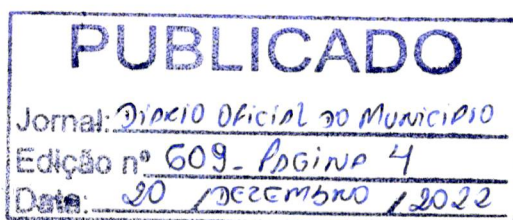 PUBLICADO
Jornal: DIÁRIO OFICIAL DO MUNICIPIO
Edição nº 609 - PÁGINA 4
Data: 20 / DEZEMBRO / 2022